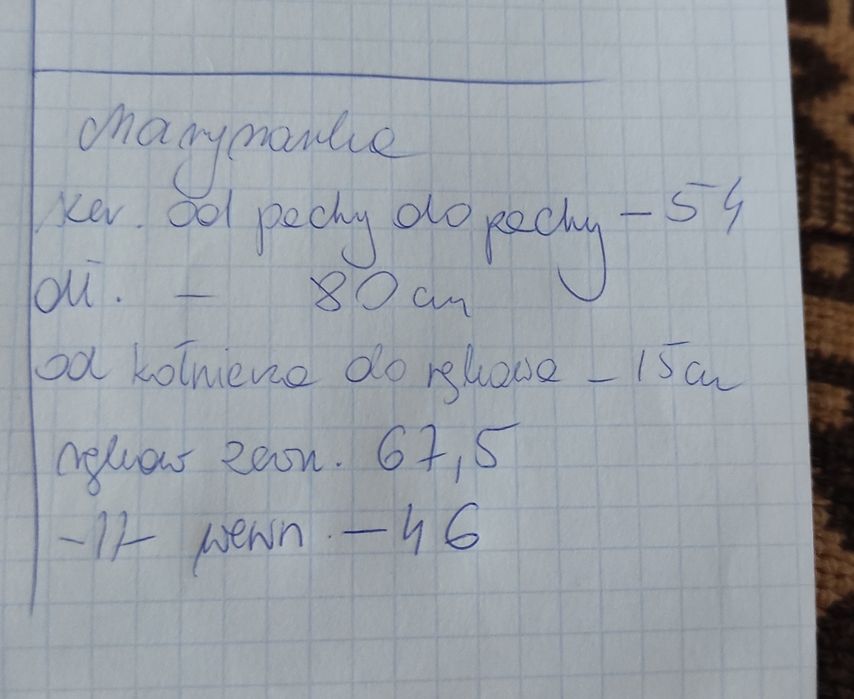 Marynarka
szer. od pachy do pachy - 54
dł. - 80 cm
od kołnierza do rękawa - 15 cm
rękaw zewn. 67,5
-11- wewn. - 46